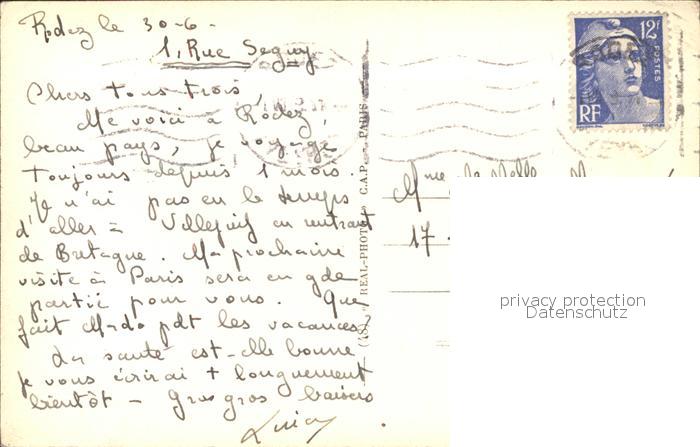 Rodez le 30-6-
1, Rue Seguy
Chers tous trois,
Me voici à Rodez,
beau pays, je voyage
toujours depuis 1 mois.
Je n'ai pas eu le temps
d'aller à Villejuif en rentrant
de Bretagne. Ma prochaine
visite à Paris sera en gde
partie pour vous. Que
fait Mado pdt les vacances?
La santé est-elle bonne
je vous écrirai + longuement
bientôt - Gros gros baisers
REAL-PHOTO
C.A.P.
PARIS
12F
POSTES
RF
Mme
17
privacy protection
Datenschutz